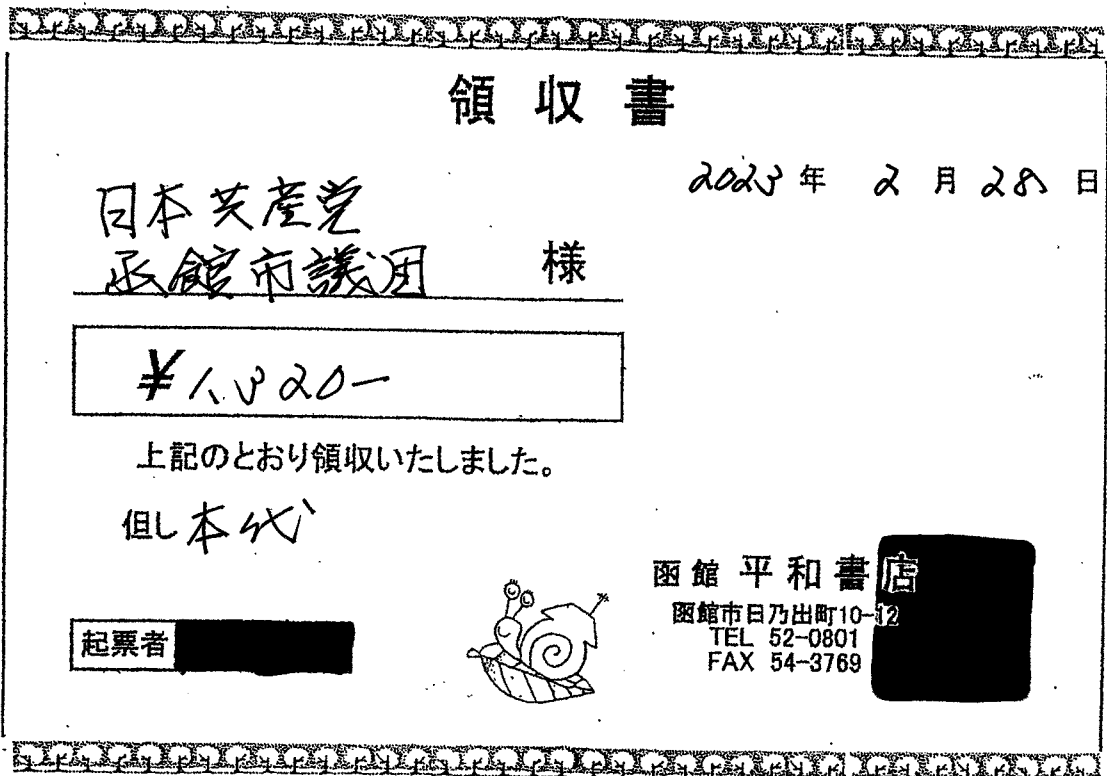 領収書
2023年 2月 28日
日本共産党
函館市議団 様
¥1,320-
上記のとおり領収いたしました。
但し 本代
函館 平和書店
函館市日乃出町10-12
TEL 52-0801
FAX 54-3769
起票者